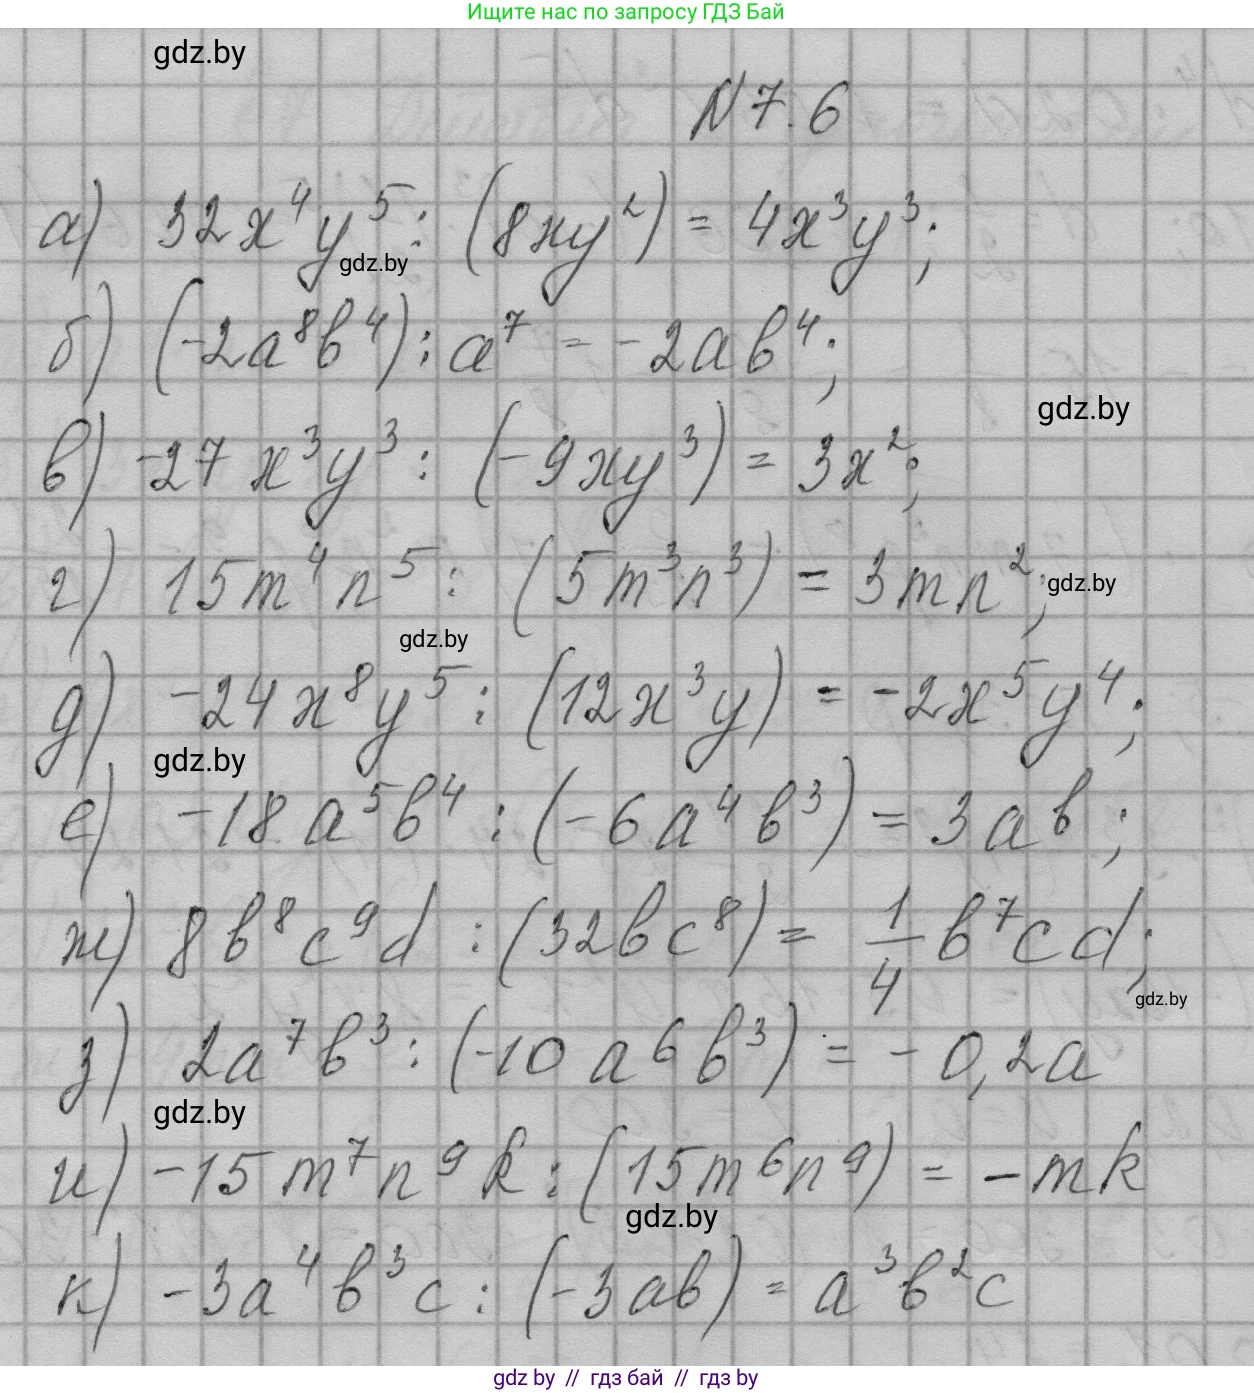 Ищите нас по запросу ГДЗ Бай
gdz.by
N 7.6
а) 32x⁴y⁵ : (8xy²) = 4x³y³;
gdz.by
б) (-2a⁸b⁴) : a⁷ = -2ab⁴;
gdz.by
в) -27x³y³ : (-9xy³) = 3x²;
г) 15m⁴n⁵ : (5m³n³) = 3mn²;
gdz.by
gdz.by
д) -24x⁸y⁵ : (12x³y) = -2x⁵y⁴;
gdz.by
е) -18a⁵b⁴ : (-6a⁴b³) = 3ab;
ж) 8b⁸c⁹d : (32bc⁸) = 1/4 b⁷cd;
gdz.by
з) 2a⁷b³ : (-10a⁶b³) = -0,2a
gdz.by
и) -15m⁷n⁹k : (15m⁶n⁹) = -mk
gdz.by
к) -3a⁴b³c : (-3ab) = a³b²c
gdz by // гдз бай // гдз by